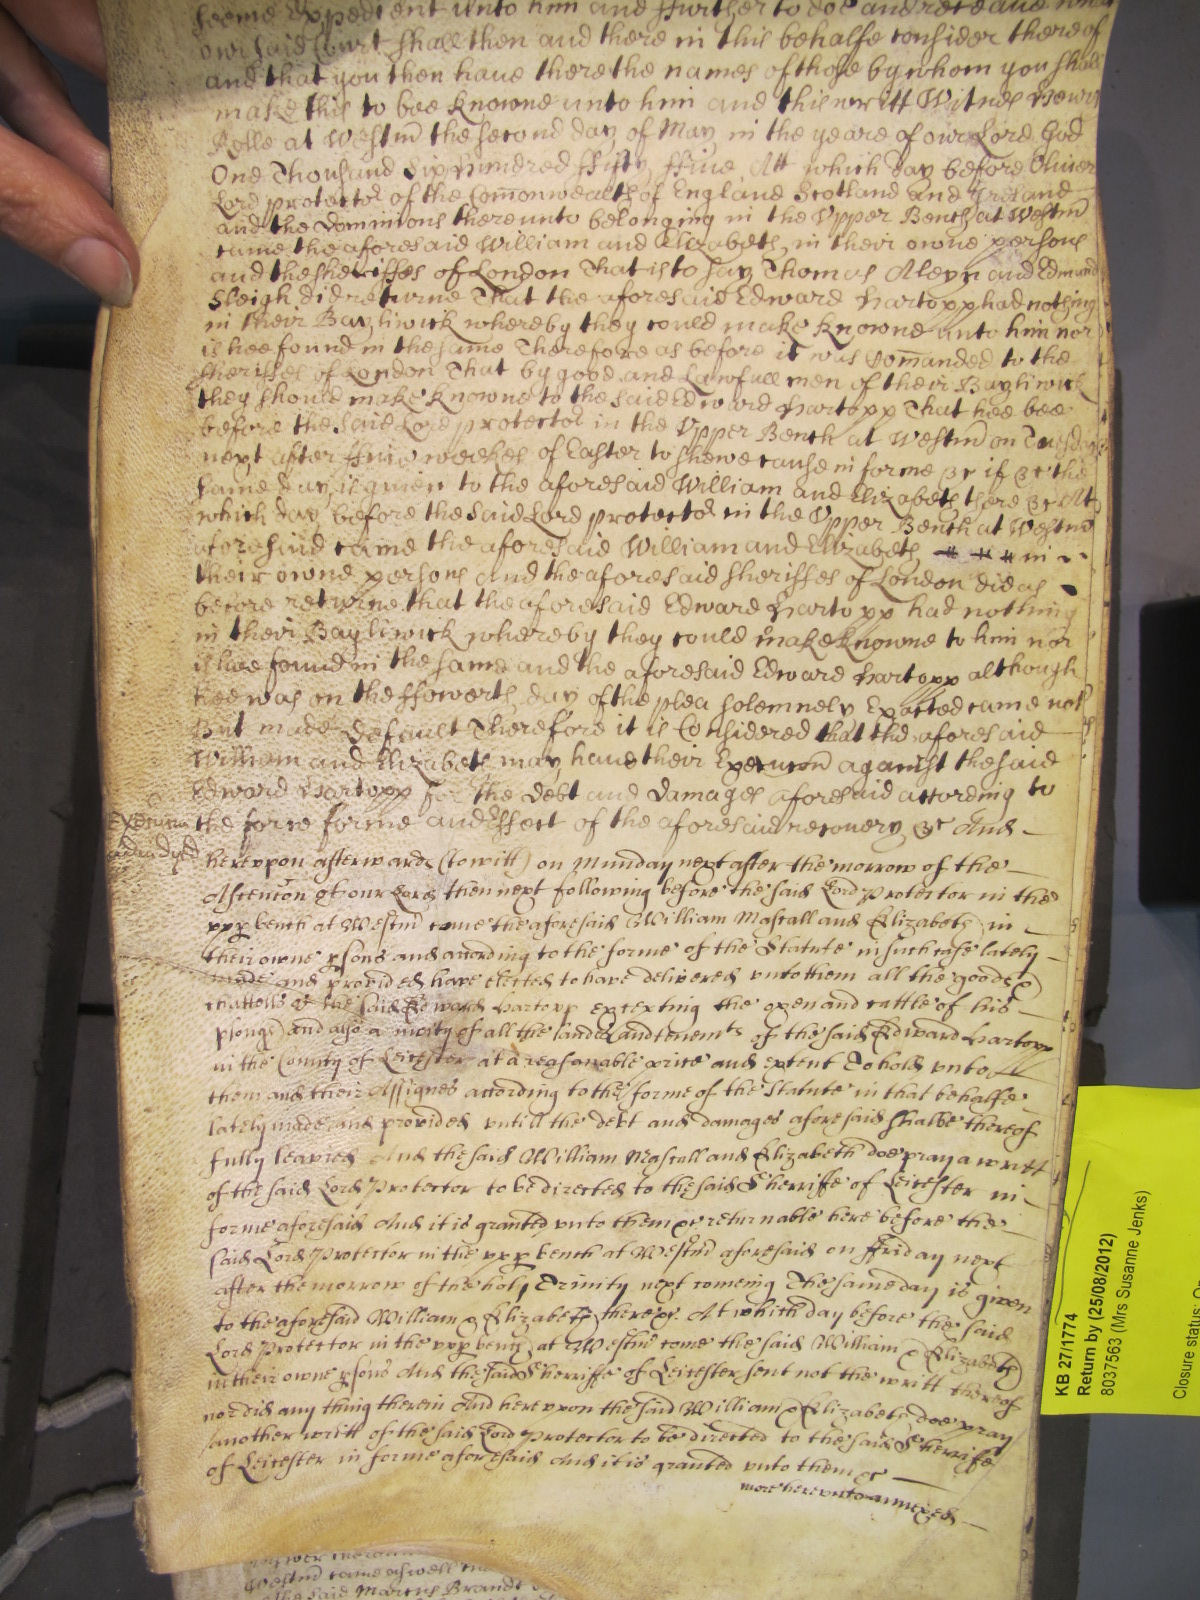 forme Expedient unto him and ffurther to doe and receave what
our said Court shall then and there in this behalfe consider thereof
and that you then have there the names of those by whom you shall
make this to bee knowne unto him and this writt Witnes Henry
Rolle at Westm the second day of May in the yeare of our Lord God
One Thousand Six hundred ffifty ffive Att which day before Oliver
Lord protector of the Comonwealth of England Scotland and Ireland
and the Dominions thereunto belonging in the Upper Bench at Westm
came the aforesaid William and Elizabeth in their owne persons
and the sheriffes of London That is to say Thomas Aleyn and Edmund
Sleigh did returne That the aforesaid Edward Hartopp had nothing
in their Bayliwick whereby they could make knowne unto him nor
is hee found in the same Therefore as before it was Comanded to the
sheriffes of London That by good and Lawfull men of their Bayliwick
they should make knowne to the said Edward Hartopp That hee bee
before the said Lord protector in the Upper Bench at Westm on Tuesday
next after ffive weekes of Easter to shewe cause in forme &c if &c the
same day is given to the aforesaid William and Elizabeth there &c At
which day before the said Lord protector in the Upper Bench at Westm
aforesaid came the aforesaid William and Elizabeth in
their owne persons and the aforesaid sheriffes of London did as
before returne that the aforesaid Edward Hartopp had nothing
in their Bayliwick whereby they could make knowne to him nor
is hee found in the same and the aforesaid Edward Hartopp although
hee was on the ffowerth day of the plea solemnely Exacted came not
But made default Therefore it is Considered that the aforesaid
William and Elizabeth may have their Execucon against the said
Edward Hartopp for the debt and damages aforesaid according to
the force forme and Effect of the aforesaid recovery &c And
Execucon
adiudged
hereupon afterwards (to witt) on Munday next after the morrow of the
Ascencon of our Lord then next following before the said Lord Protector in the
upp bench at Westm come the aforesaid William Mascall and Elizabeth in
their owne psons and according to the forme of the Statute in such case lately
made and provided have elected to have delivered unto them all the goods &
chattells of the said Edward Hartopp excepting the oxen and cattle of his
plough and also a moity of all the lands and tenemts of the said Edward Hartopp
in the County of Leicester at a reasonable price and extent To hold unto
them and their Assignes according to the forme of the Statute in that behalfe
lately made and provided untill the debt and damages aforesaid shalbe thereof
fully leavied And the said William Mascall and Elizabeth doe pray a writt
of the said Lord Protector to be directed to the said Sherriffe of Leicester in
forme aforesaid And it is granted unto them &c returnable here before the
said Lord Protector in the upp bench at Westm aforesaid on ffriday next
after the morrow of the holy Trinity next comeing The same day is given
to the aforesaid William & Elizabeth there &c. At which day before the said
Lord Protector in the upp bench at Westm come the said William & Elizabeth
in their owne psons And the said Sherriffe of Leicester sent not the writt thereof
nor did any thing therein And hereupon the said William & Elizabeth doe pray
another writt of the said Lord Protector to be directed to the said Sherriffe
of Leicester in forme aforesaid And it is granted unto them &c
more hereunto annexed
Westm came aswell
the said Marcus Brandt
KB 27/1774
Return by (25/08/2012)
8037563 (Mrs Susanne Jenks)
Closure status: